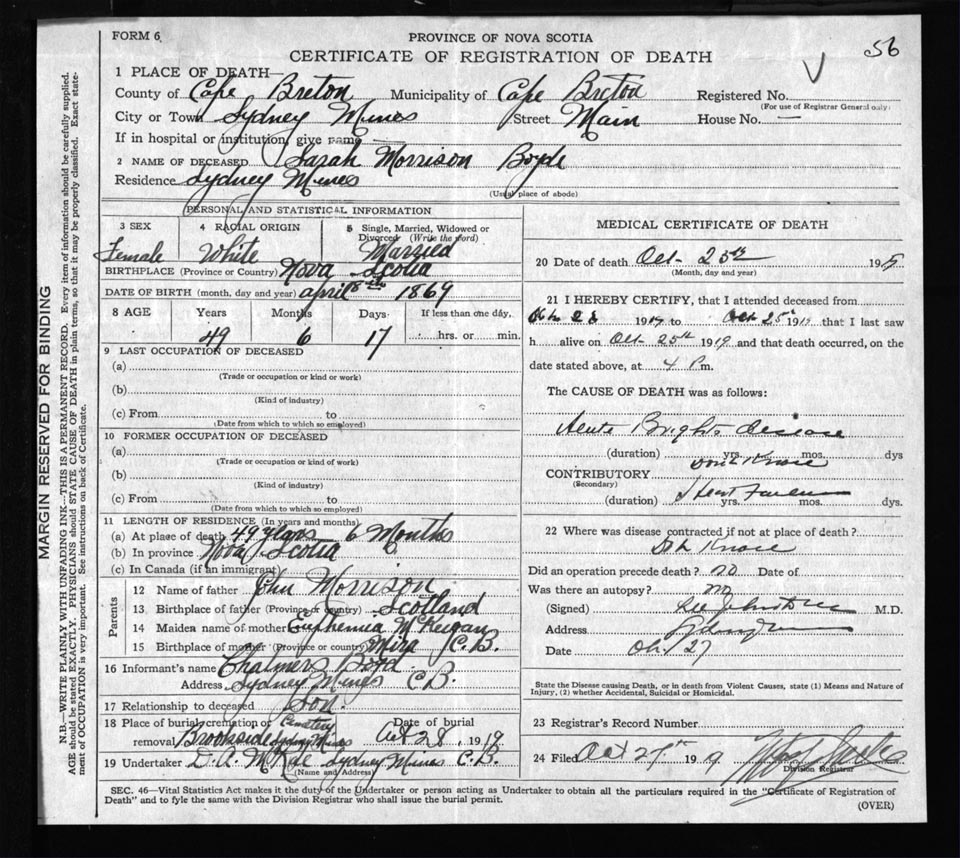 FORM 6.
PROVINCE OF NOVA SCOTIA
56
CERTIFICATE OF REGISTRATION OF DEATH
1 PLACE OF DEATH—
County of Cape Breton Municipality of Cape Breton Registered No.
(For use of Registrar General only)
City or Town Sydney Mines Street Main House No. —
If in hospital or institution, give name
2 NAME OF DECEASED Sarah Morrison Boyde
Residence Sydney Mines
(Usual place of abode)
PERSONAL AND STATISTICAL INFORMATION
3 SEX 4 RACIAL ORIGIN 5 Single, Married, Widowed or Divorced (Write the word)
Female White Married
BIRTHPLACE (Province or Country) Nova Scotia
DATE OF BIRTH (month, day and year) april 8th 1869
8 AGE Years Months Days If less than one day,
49 6 17 hrs. or min.
9 LAST OCCUPATION OF DECEASED
(a)
(Trade or occupation or kind or work)
(b)
(Kind of industry)
(c) From to
(Date from which to which so employed)
10 FORMER OCCUPATION OF DECEASED
(a)
(Trade or occupation or kind or work)
(b)
(Kind of industry)
(c) From to
(Date from which to which so employed)
11 LENGTH OF RESIDENCE (In years and months)
(a) At place of death 49 years 6 Months
(b) In province Nova Scotia
(c) In Canada (if an immigrant)
Parents
12 Name of father John Morrison
13 Birthplace of father (Province or country) Scotland
14 Maiden name of mother Euphemia McKeigan
15 Birthplace of mother (Province or country) Mira C.B.
16 Informant's name Chalmers Boyd
Address Sydney Mines C.B.
17 Relationship to deceased Son.
18 Place of burial, cremation or removal Brookside Cemetery Sydney Mines Date of burial Oct 28, 1919
19 Undertaker D. A. McRae Sydney Mines C.B.
(Name and Address)
MEDICAL CERTIFICATE OF DEATH
20 Date of death Oct- 25th 191
(Month, day and year)
21 I HEREBY CERTIFY, that I attended deceased from
1919 to Oct 25th 1919 that I last saw
h alive on Oct- 25th 1919 and that death occurred, on the
date stated above, at 4 P m.
The CAUSE OF DEATH was as follows:
Acute Brights disease
(duration) yrs. mos. dys
Dont Know
CONTRIBUTORY
(Secondary)
Heart Failure
(duration) yrs. mos. dys.
22 Where was disease contracted if not at place of death?
Dont Know
Did an operation precede death? no Date of
Was there an autopsy? no
(Signed) M.D.
Address Sydney Mines
Date Oct 27
State the Disease causing Death, or in death from Violent Causes, state (1) Means and Nature of
Injury, (2) whether Accidental, Suicidal or Homicidal.
23 Registrar's Record Number
24 Filed Oct 27th 19 9
Division Registrar
SEC. 46—Vital Statistics Act makes it the duty of the Undertaker or person acting as Undertaker to obtain all the particulars required in the "Certificate of Registration of
Death" and to fyle the same with the Division Registrar who shall issue the burial permit.
(OVER)
MARGIN RESERVED FOR BINDING
N.B.—WRITE PLAINLY WITH UNFADING INK—THIS IS A PERMANENT RECORD. Every item of information should be carefully supplied.
AGE should be stated EXACTLY. PHYSICIANS should STATE CAUSE OF DEATH in plain terms, so that it may be properly classified. Exact state-
ment of OCCUPATION is very important. See instructions on back of Certificate.